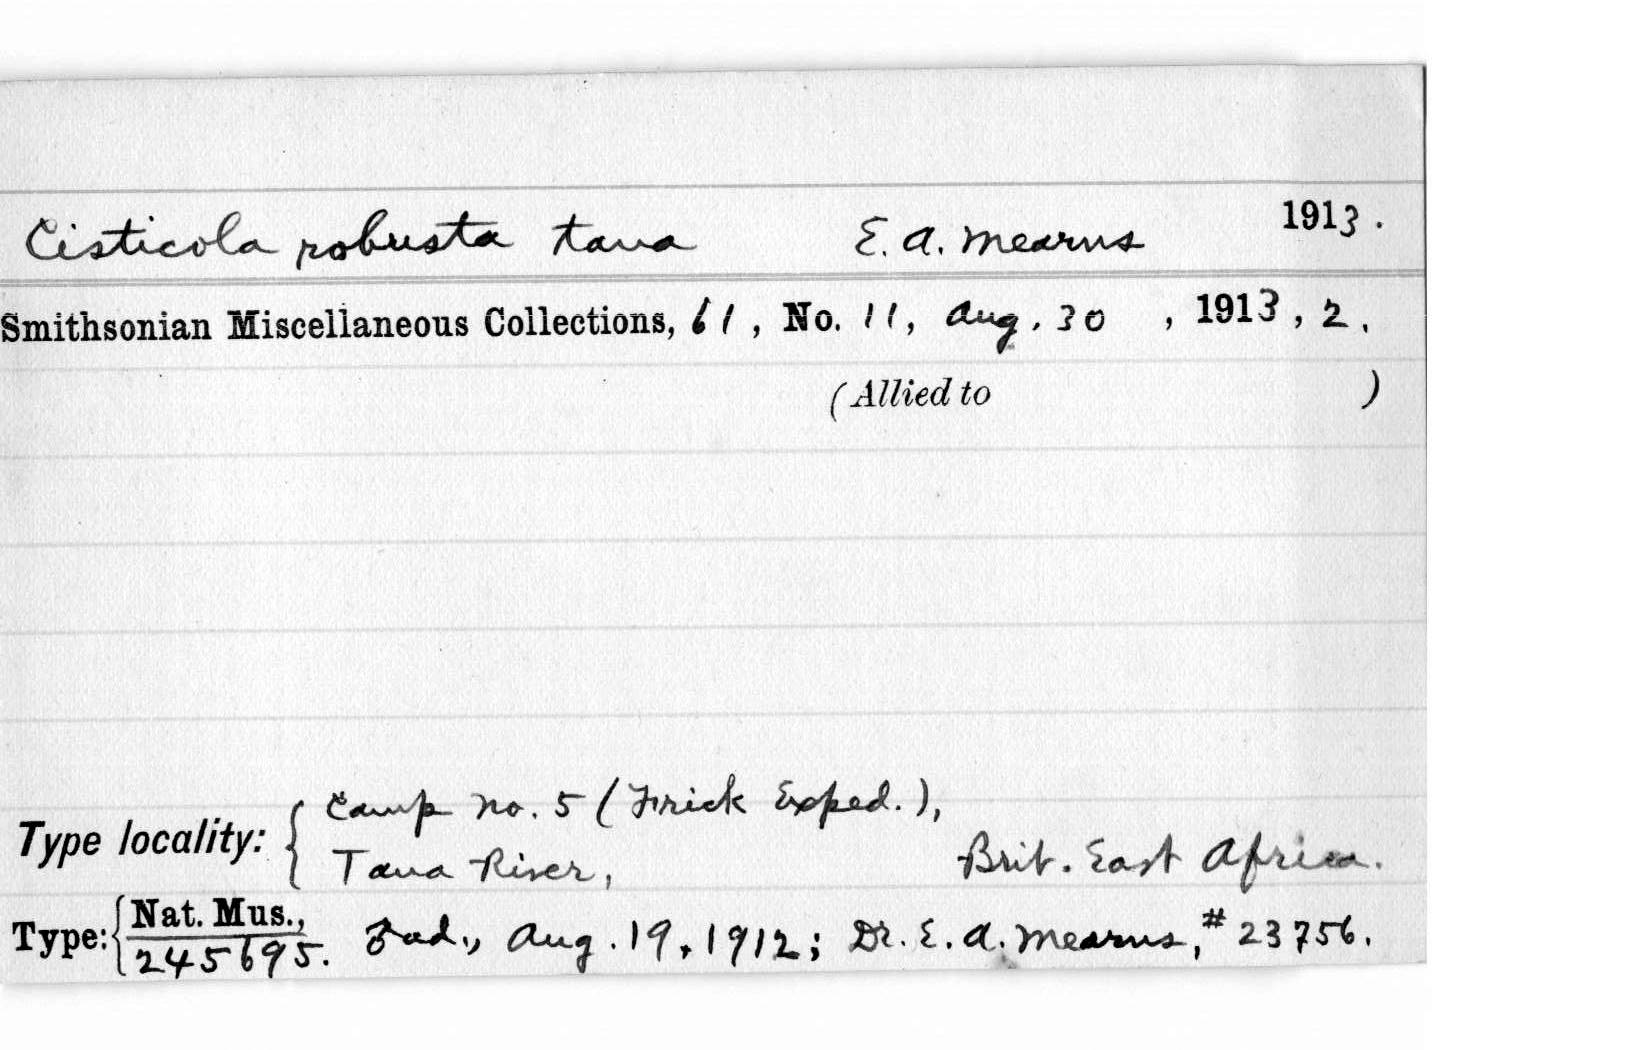 Cisticola robusta tana E. A. Mearns 1913.
Smithsonian Miscellaneous Collections, 61, No. 11, Aug. 30, 1913, 2.
(Allied to )
Camp No. 5 (Frick Exped.),
Type locality: { Tana River, Brit. East Africa.
Type: { Nat. Mus., 
245695. ad., Aug. 19, 1912; Dr. E. A. Mearns, # 23756.